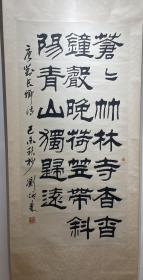 蒼〻竹林寺杳杳
鐘聲晚荷笠帶斜
陽青山獨歸遠
唐劉長卿詩 己未秋杪劉